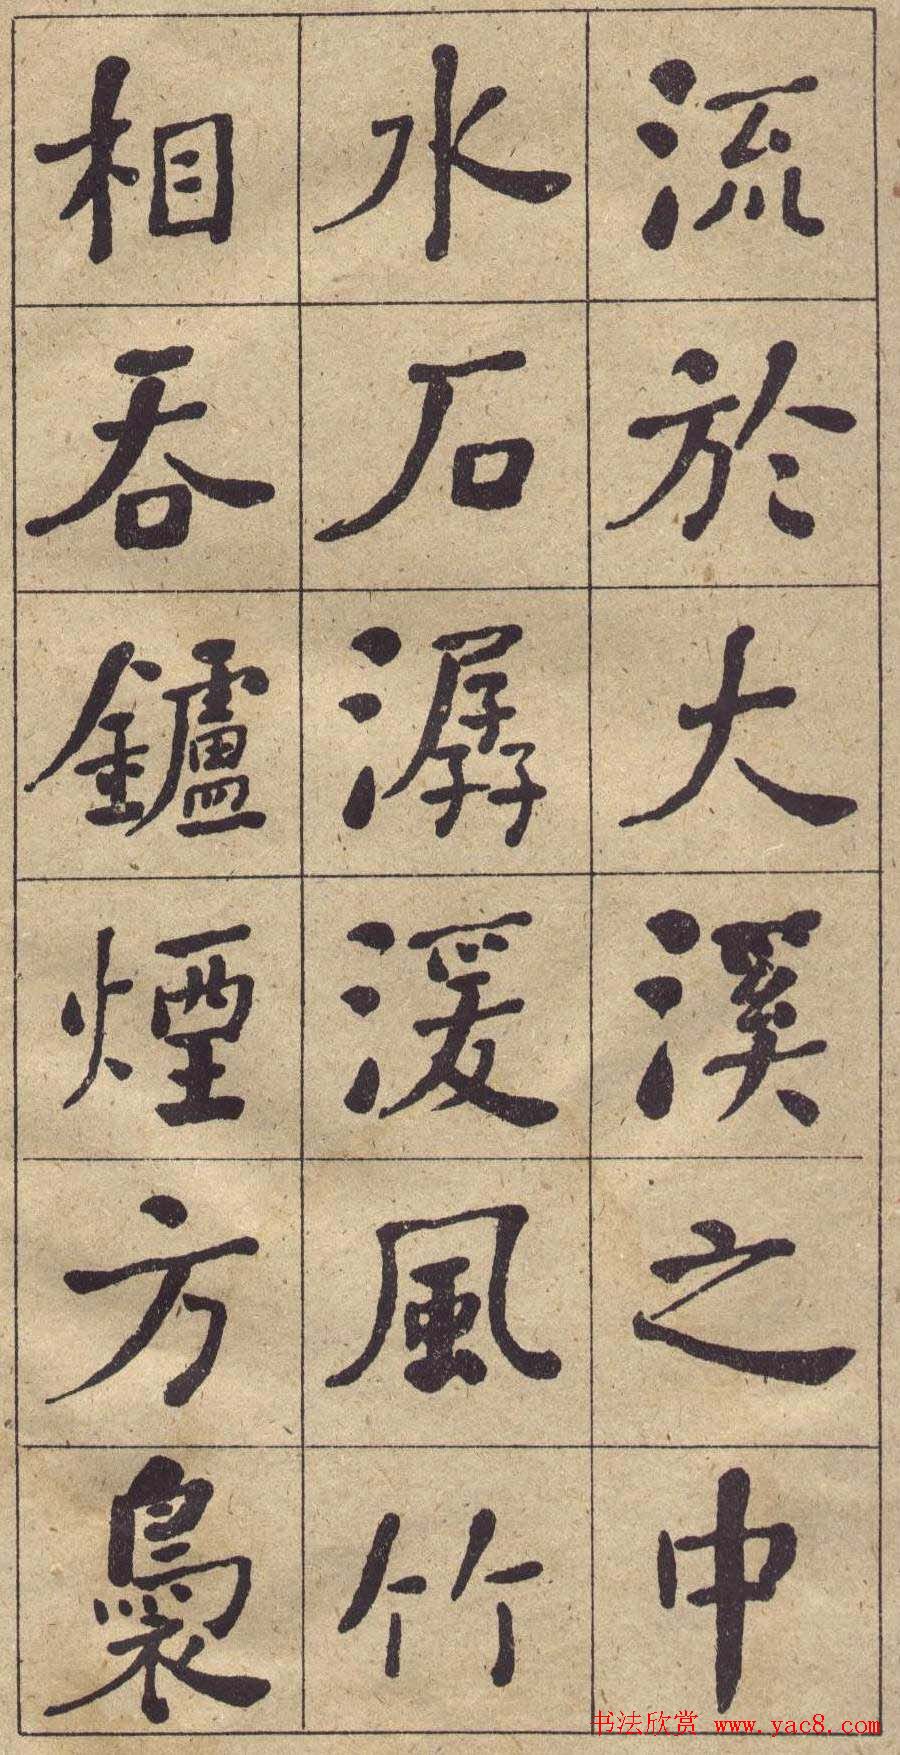 流於大溪之中
水石潺湲風竹
相吞鑪煙方裊
书法欣赏 www.yac8.com